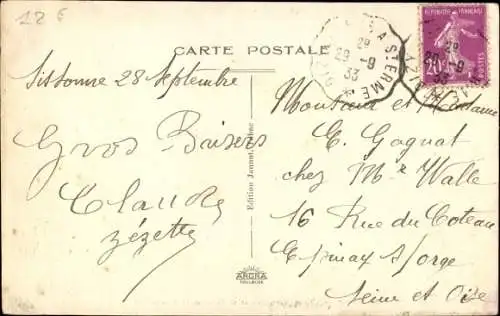 12 €
CARTE POSTALE
29 -9
33
REPUBLIQUE FRANCAISE
20c
POSTES
Sissonne 28 Septembre
Gros Baisers
Claude
Zézette
Monsieur et Madame
C. Gagnat
chez Mr Walle
16 Rue du Coteau
Epinay s/orge
Seine et Oise
Edition
ARONA